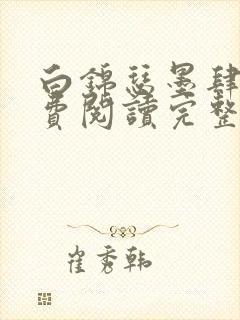 白錦瑟墨肆
費閱讀完整
崔秀韩